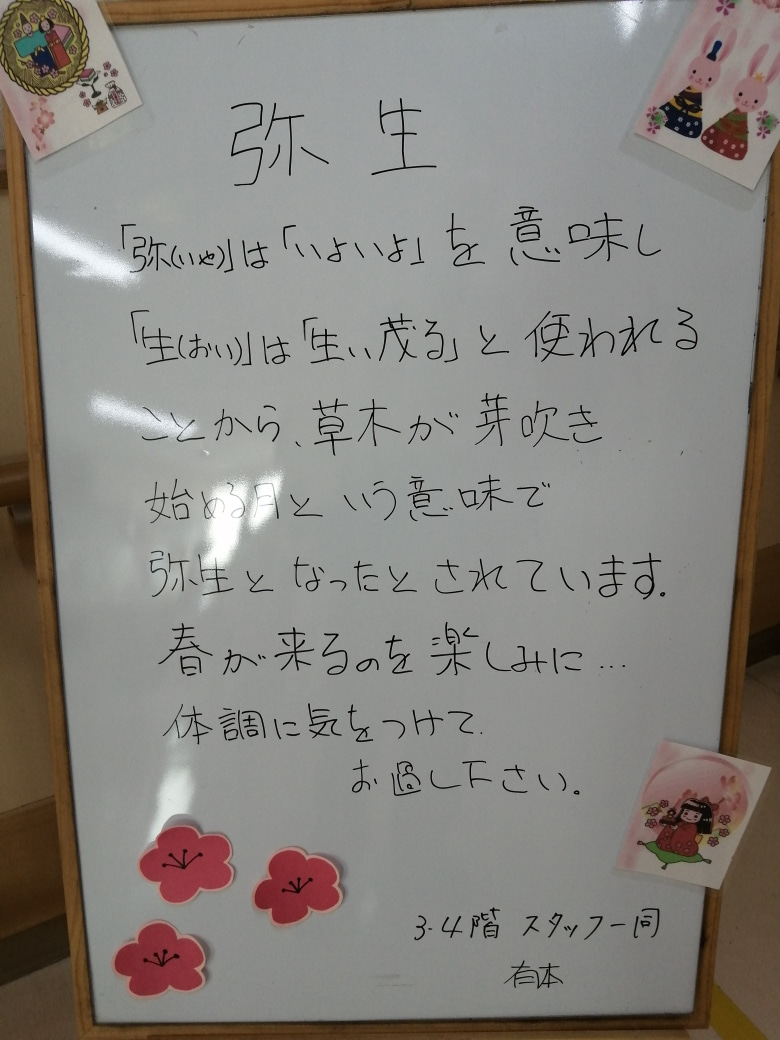 弥生
「弥(いや)」は「いよいよ」を意味し
「生(おい)」は「生い茂る」と使われる
ことから、草木が芽吹き
始める月という意味で
弥生となったとされています。
春が来るのを楽しみに…
体調に気をつけて、
お過し下さい。
3・4階 スタッフ一同
有本